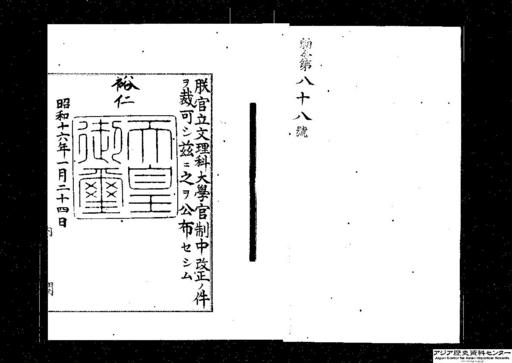 勅令第八十八號
朕官立文理科大學官制中改正ノ件
ヲ裁可シ茲ニ之ヲ公布セシム
裕仁
天皇
御璽
昭和十六年一月二十四日
内閣
アジア歴史資料センター
Japan Center for Asian Historical Records